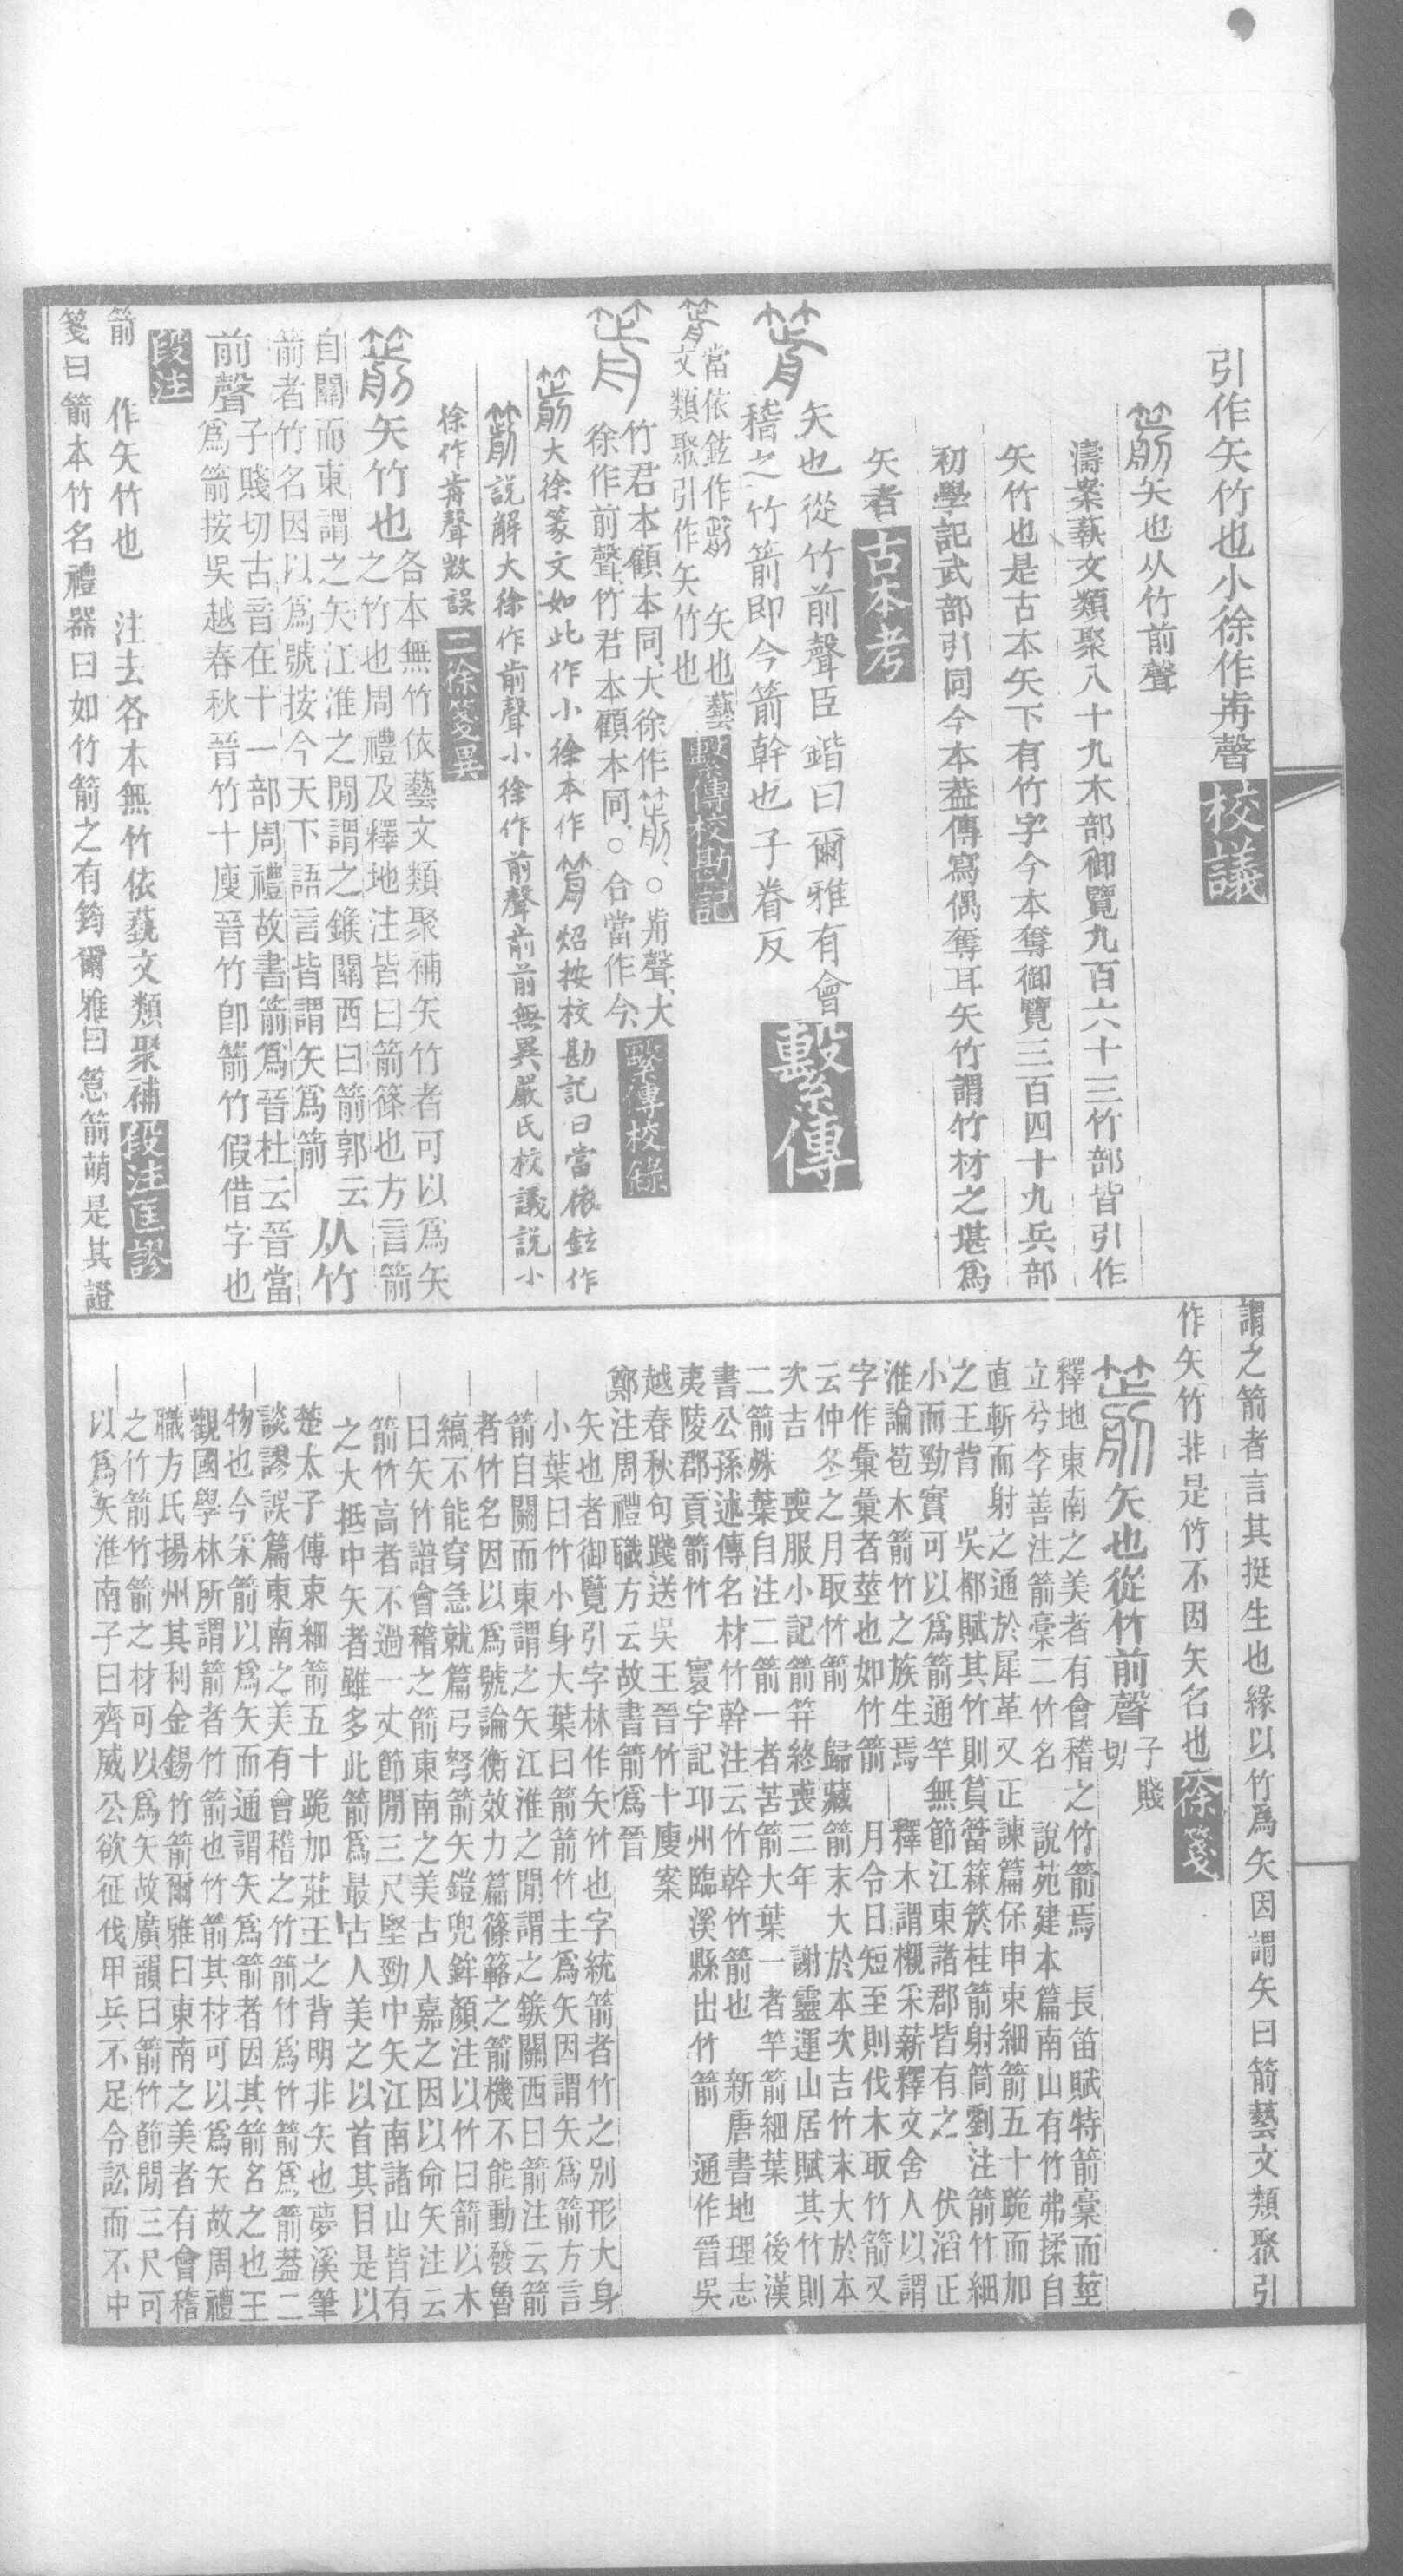 引作矢竹也小徐作歬聲 校議
箭矢也从竹前聲
濤案蓺文類聚八十九木部御覽九百六十三竹部皆引作
矢竹也是古本矢下有竹字今本奪御覽三百四十九兵部
初學記武部引同今本葢傳寫偶奪耳矢竹謂竹材之堪爲
矢者 古本考
矢也從竹前聲臣鍇曰爾雅有會
稽之竹箭即今箭幹也子眷反 繫傳
當依鉉作 矢也藝
文類聚引作矢竹也 繫傳校勘記
竹君本顧本同大徐作 ○歬聲大
徐作前聲竹君本顧本同○合當作今 繫傳校錄
大徐篆文如此作小徐本作 炤按校勘記曰當依鉉作
說解大徐作前聲小徐作歬聲前歬無異嚴氏校議說小
徐作歬聲数誤 二徐箋異
箭 矢竹也 各本無竹依藝文類聚補矢竹者可以爲矢
之竹也周禮及釋地注皆曰箭篠也方言箭
自關而東謂之矢江淮之閒謂之鍭關西曰箭郭云
箭者竹名因以爲號按今天下語言皆謂矢爲箭 从竹
前聲 子賤切古音在十一部周禮故書箭爲晉杜云晉當
爲箭按吳越春秋晉竹十廋晉竹卽箭竹假借字也
段注
箭 作矢竹也 注去各本無竹依蓺文類聚補 段注匡謬
箋曰箭本竹名禮器曰如竹箭之有筠爾雅曰篙箭萌是其證
謂之箭者言其挺生也緣以竹爲矢因謂矢曰箭藝文類聚引
作矢竹非是竹不因矢名也 徐箋
箭 矢也從竹前聲 子賤切
釋地東南之美者有會稽之竹箭焉 長笛賦特箭稾而莖
立兮李善注箭稾二竹名 說苑建本篇南山有竹弗揉自
直斬而射之通於犀革又正諫篇保申束細箭五十跪而加
之王背 吳都賦其竹則篔簹箖箊桂箭射筒劉注箭竹細
小而勁實可以爲箭通竿無節江東諸郡皆有之 伏滔正
淮論苞木箭竹之族生焉 釋木謂櫬采薪釋文舍人以謂
字作彙彙者莖也如竹箭 月令日短至則伐木取竹箭又
云仲冬之月取竹箭 歸藏箭末大於本次吉竹末大於本
次吉 喪服小記箭笄終喪三年 謝靈運山居賦其竹則
二箭殊葉自注二箭一者苦箭大葉一者笄箭細葉 後漢
書公孫述傳名材竹幹注云竹幹竹箭也 新唐書地理志
夷陵郡貢箭竹 寰宇記邛州臨溪縣出竹箭 通作晉吳
越春秋句踐送吳王晉竹十廋案
鄭注周禮職方云故書箭爲晉
矢也者御覽引字林作矢竹也字統箭者竹之別形大身
小葉曰竹小身大葉曰箭箭竹主爲矢因謂矢爲箭方言
箭自關而東謂之矢江淮之閒謂之鍭關西曰箭注云箭
者竹名因以爲號論衡效力篇篠簵之箭機不能動發魯
縞不能穿急就篇弓弩箭矢鎧兜鉾顏注以竹曰箭以木
曰矢竹譜會稽之箭東南之美古人嘉之因以命矢注云
箭竹高者不過一丈節閒三尺堅勁中矢江南諸山皆有
之大抵中矢者雖多此箭爲最古人美之以首其目是以
楚太子傅束細箭五十跪加莊王之背明非矢也夢溪筆
談謬誤篇東南之美有會稽之竹箭竹爲竹箭爲箭葢二
物也今采箭以爲矢而通謂矢爲箭者因其箭名之也王
觀國學林所謂箭者竹箭也竹箭其材可以爲矢故周禮
職方氏揚州其利金錫竹箭爾雅曰東南之美者有會稽
之竹箭竹箭之材可以爲矢故廣韻曰箭竹節閒三尺可
以爲矢淮南子曰齊威公欲征伐甲兵不足令訟而不中